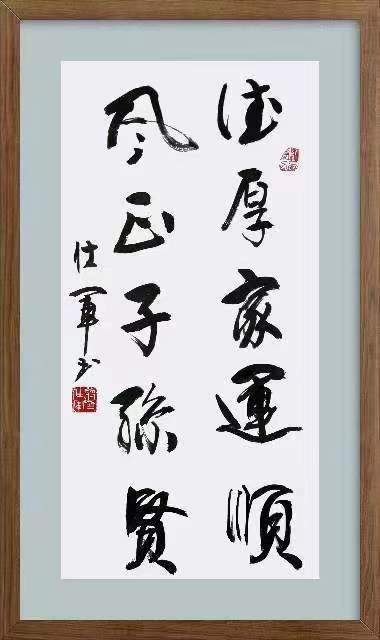 德厚家運順
风正子孫賢
仕軍书